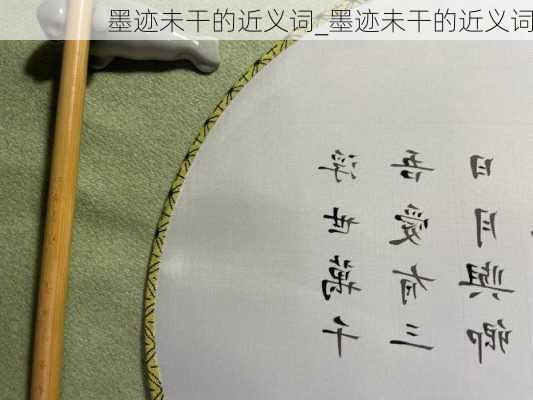 墨迹未干的近义词_墨迹未干的近义词
浮世萬千
吾愛有三
日月與卿